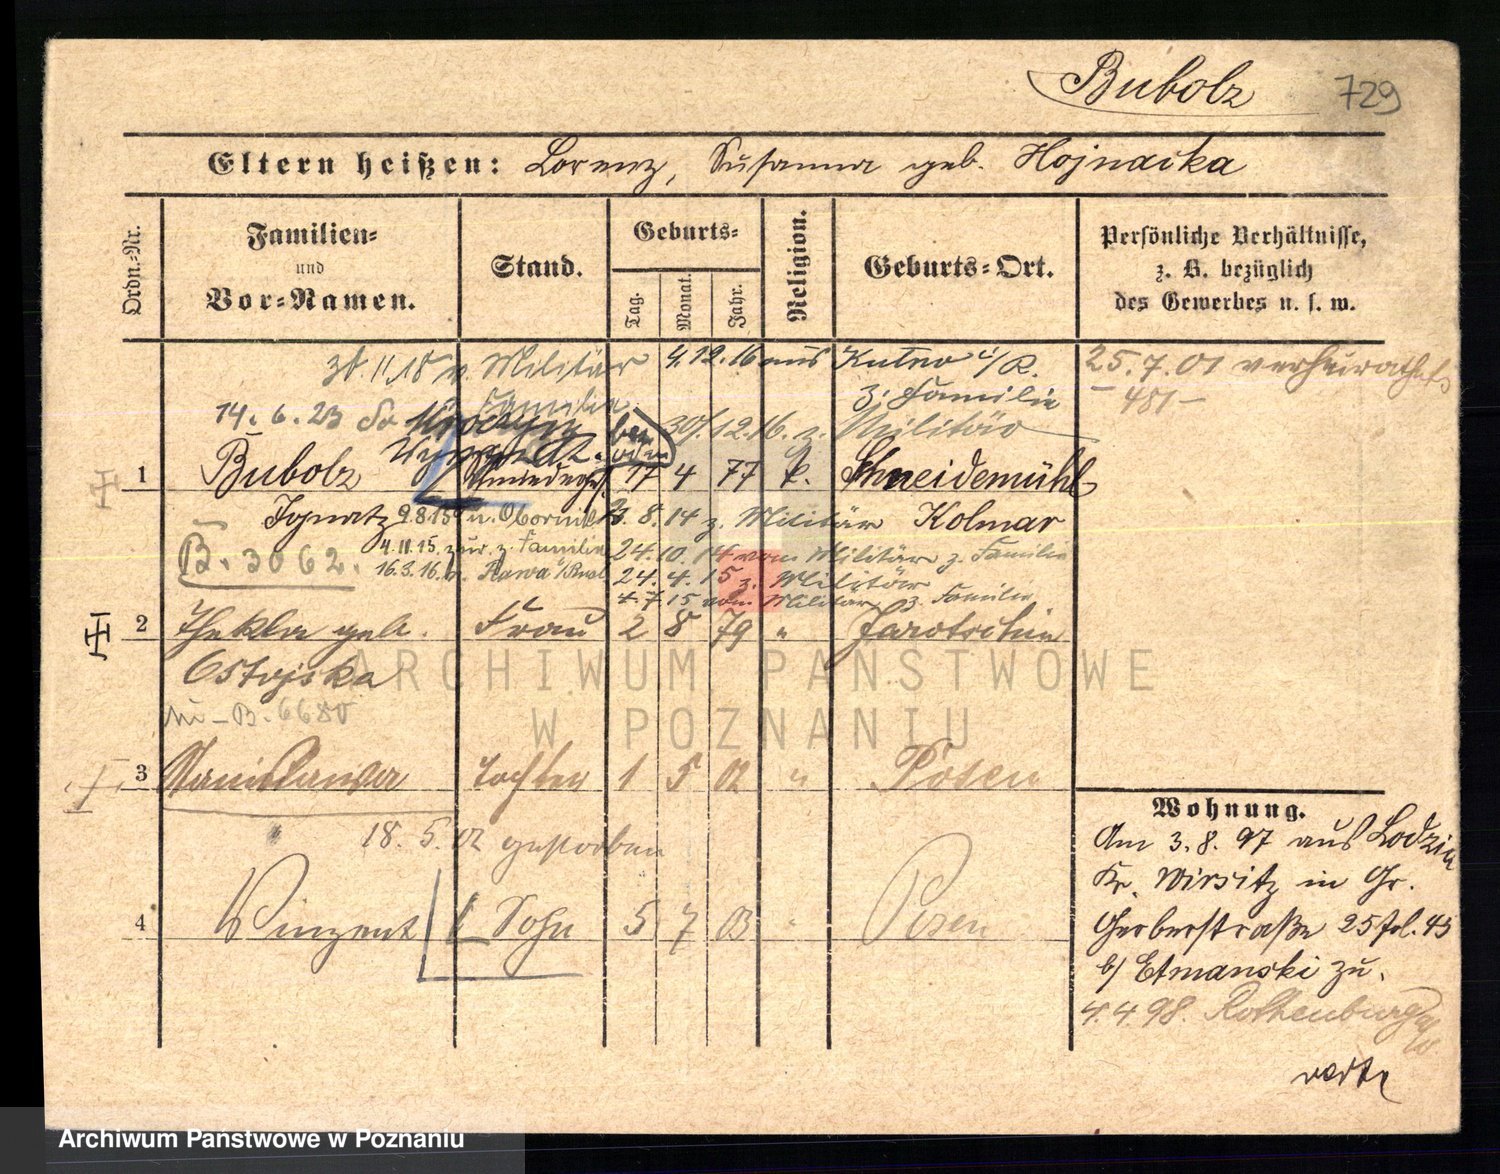 Bubolz 729
Eltern heißen: Lorenz, Susanna geb. Hojnacka
Ordn.-Nr.
Familien-
und
Vor-Namen.
Stand.
Geburts-
Tag.
Monat.
Jahr.
Religion.
Geburts-Ort.
Persönliche Verhältnisse,
z. B. bezüglich
des Gewerbes u. s. w.
30.11.18 v. Militär 4.12.16 aus Kutno i/R. 25.7.01 verheirathet
z. Familie – 481 –
Familie
14.6.23 30.12.16. z. Militär
1 Bubolz 17 4 77 k. Schneidemühl
Ignatz 9.8.15 n. Obornik 3.8.14 z. Militär Kolmar
B. 3062. 4.11.15. zur. z. Familie 24.10.14 vom Militär z. Familie
16.3.16. n. Rawa 24.4.15 z. Militär
4.7.15 vom Militär z. Familie
2 Thekla geb. Frau 2 8 79 " Jarotschin
Ostojska
B. 6680
3 Stanislawa Tochter 1 5 02 " Posen
18.5.02 gestorben
4 Vinzent Sohn 5 7 03 " Posen
Wohnung.
Am 3.8.97 aus Lodzia
Kr. Wirsitz in Gr.
Gerberstraße 25 fol. 43
b/ Etmanski zu.
4.4.98. Rothenburg
verte
ARCHIWUM PAŃSTWOWE
W POZNANIU
Archiwum Państwowe w Poznaniu